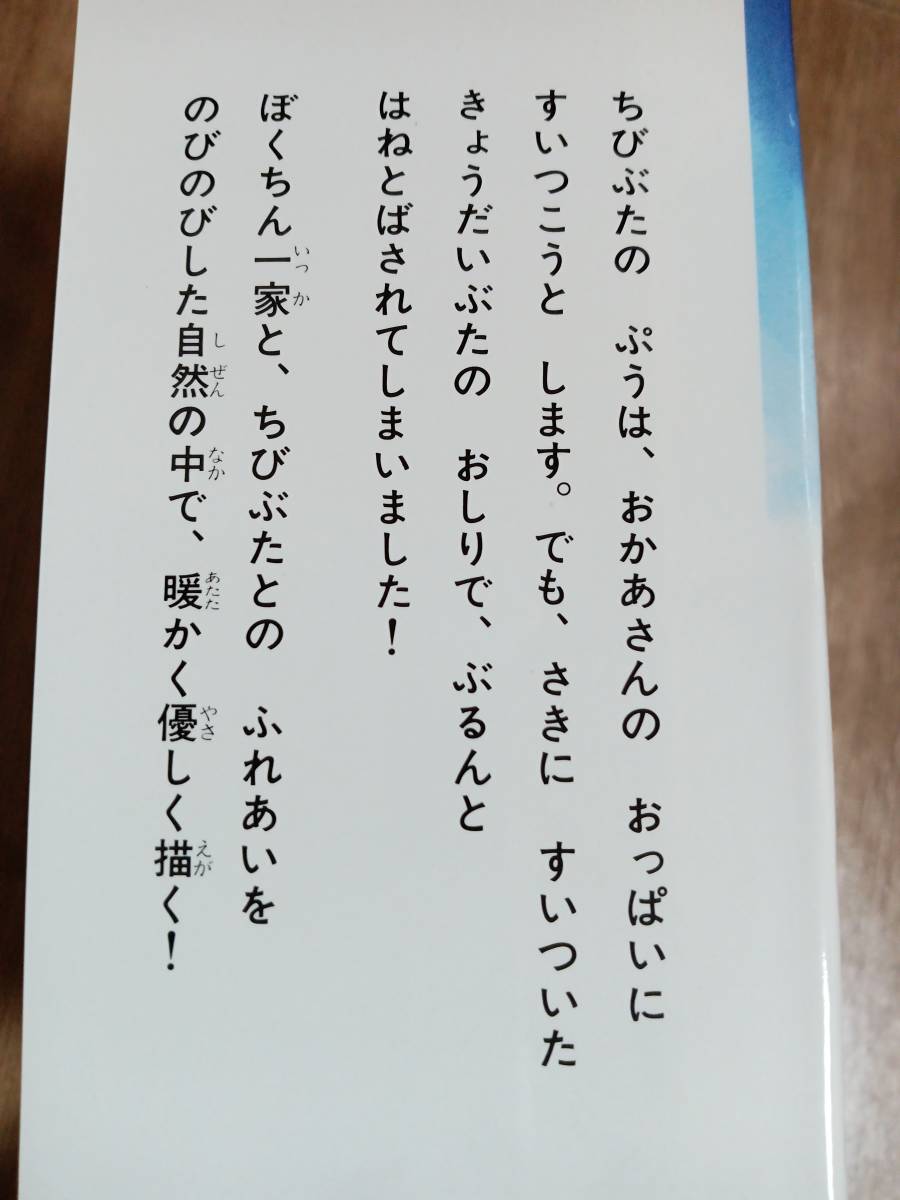 ちびぶたの　ぷうは、おかあさんの　おっぱいに
すいつこうと　します。でも、さきに　すいついた
きょうだいぶたの　おしりで、ぶるんと
はねとばされてしまいました！
ぼくちん一家と、ちびぶたとの　ふれあいを
のびのびした自然の中で、暖かく優しく描く！